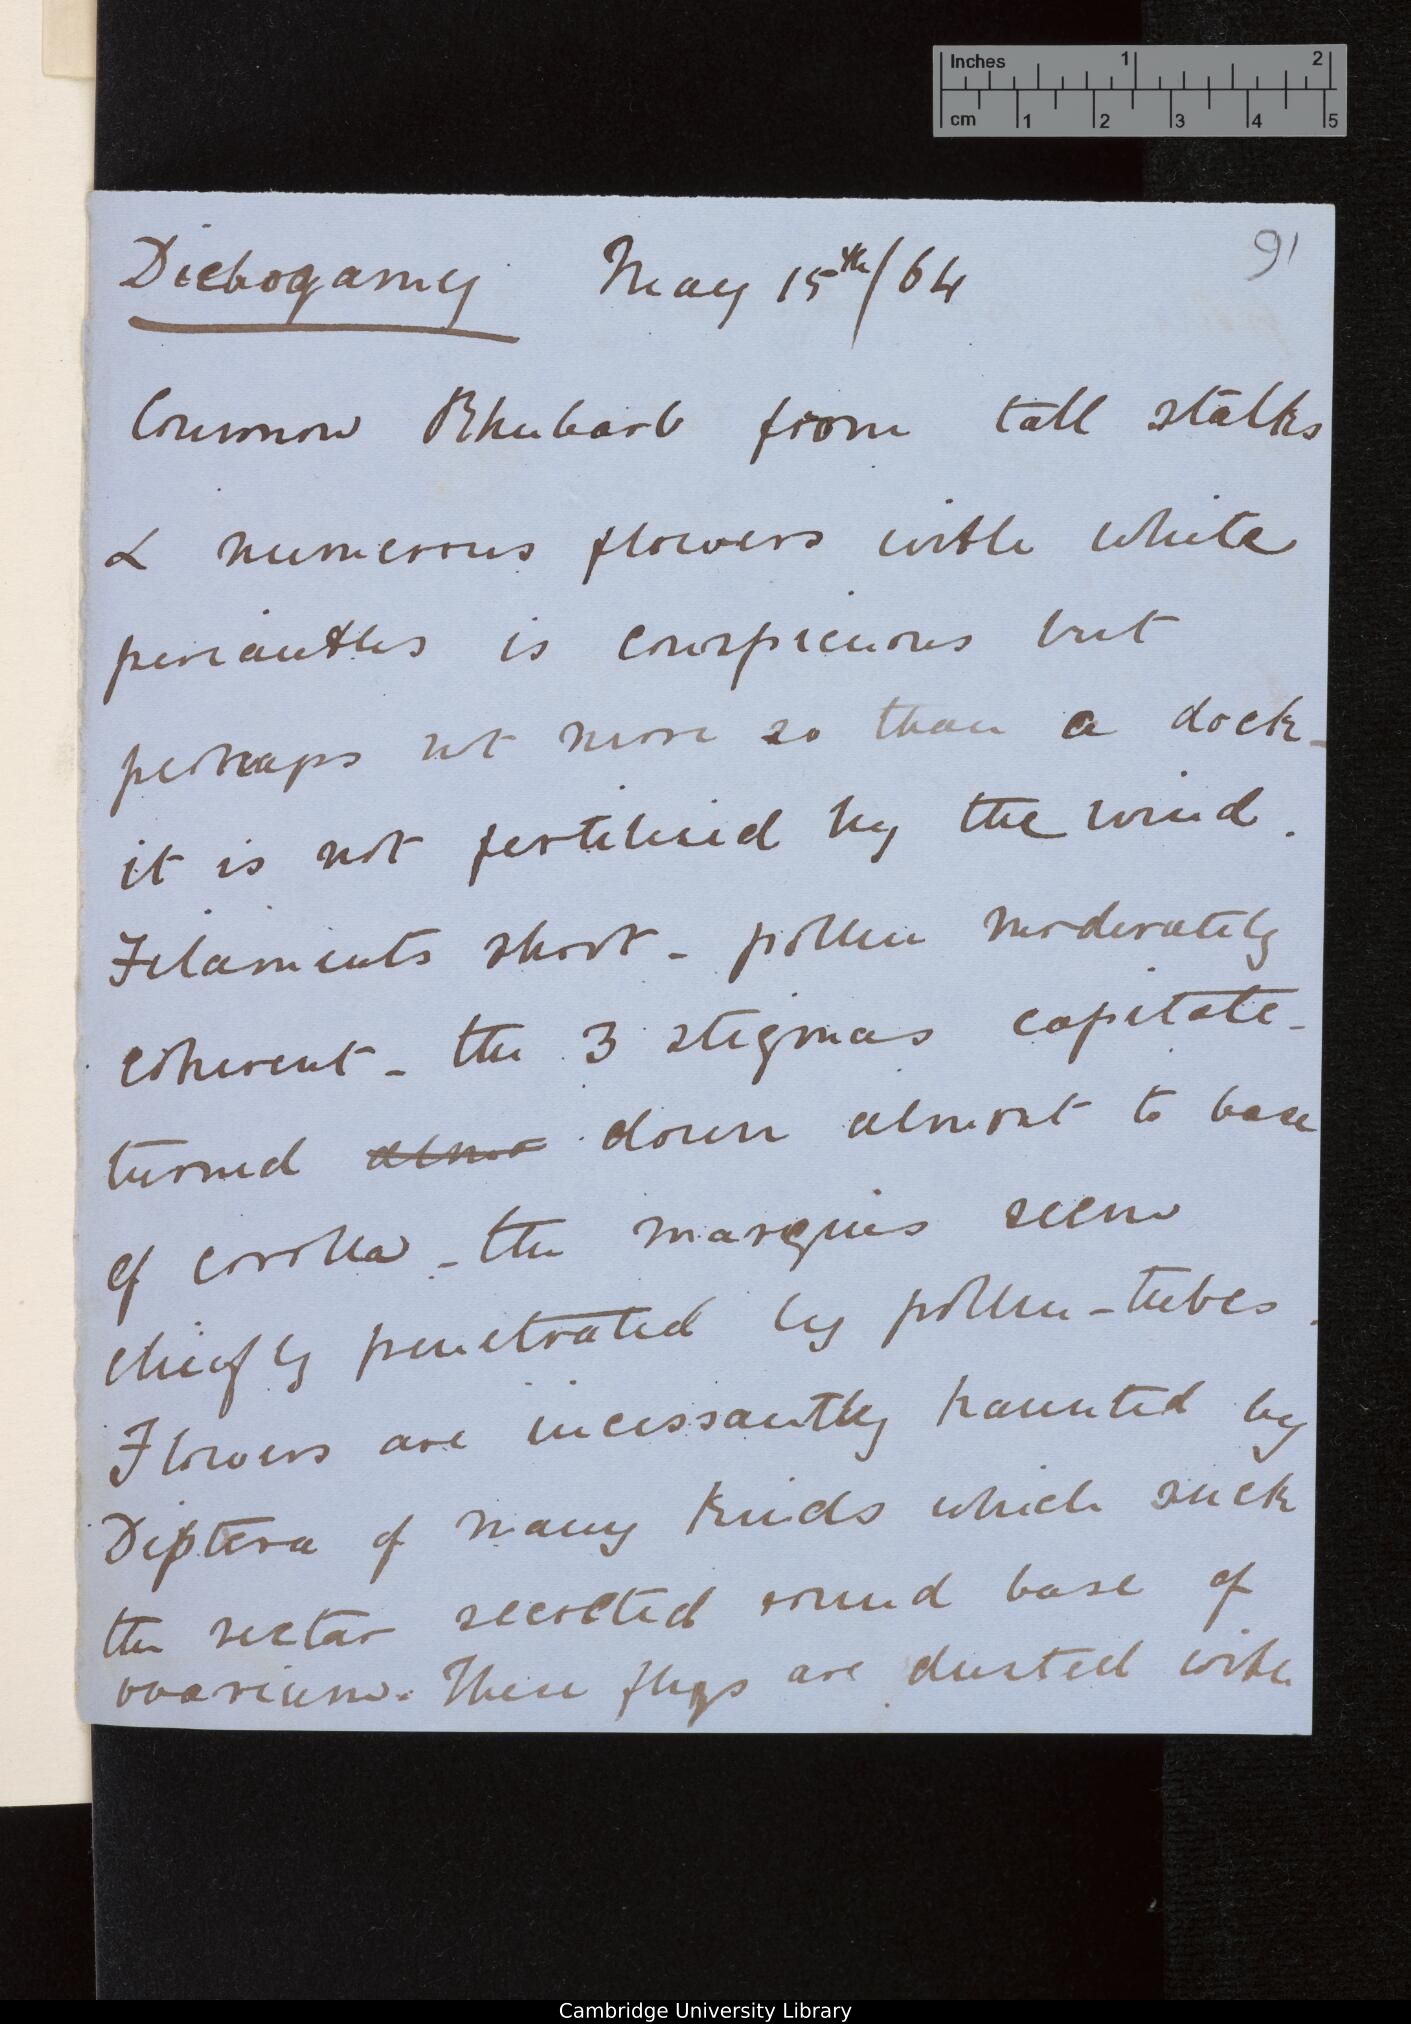 Inches 1 2
cm 1 2 3 4 5
91
Dichogamy May 15th/64
Common Rhubarb from tall stalks
& numerous flowers with white
perianths is conspicuous but
perhaps not more so than a dock-
it is not fertilised by the wind.
Filaments short - pollen moderately
coherent - the 3 stigmas capitate -
turned almo down almost to base
of corolla - the margins seem
chiefly penetrated by pollen-tubes.
Flowers are incessantly haunted by
Diptera of many kinds which suck
the nectar secreted round base of
ovarium. These flys are dusted with
Cambridge University Library